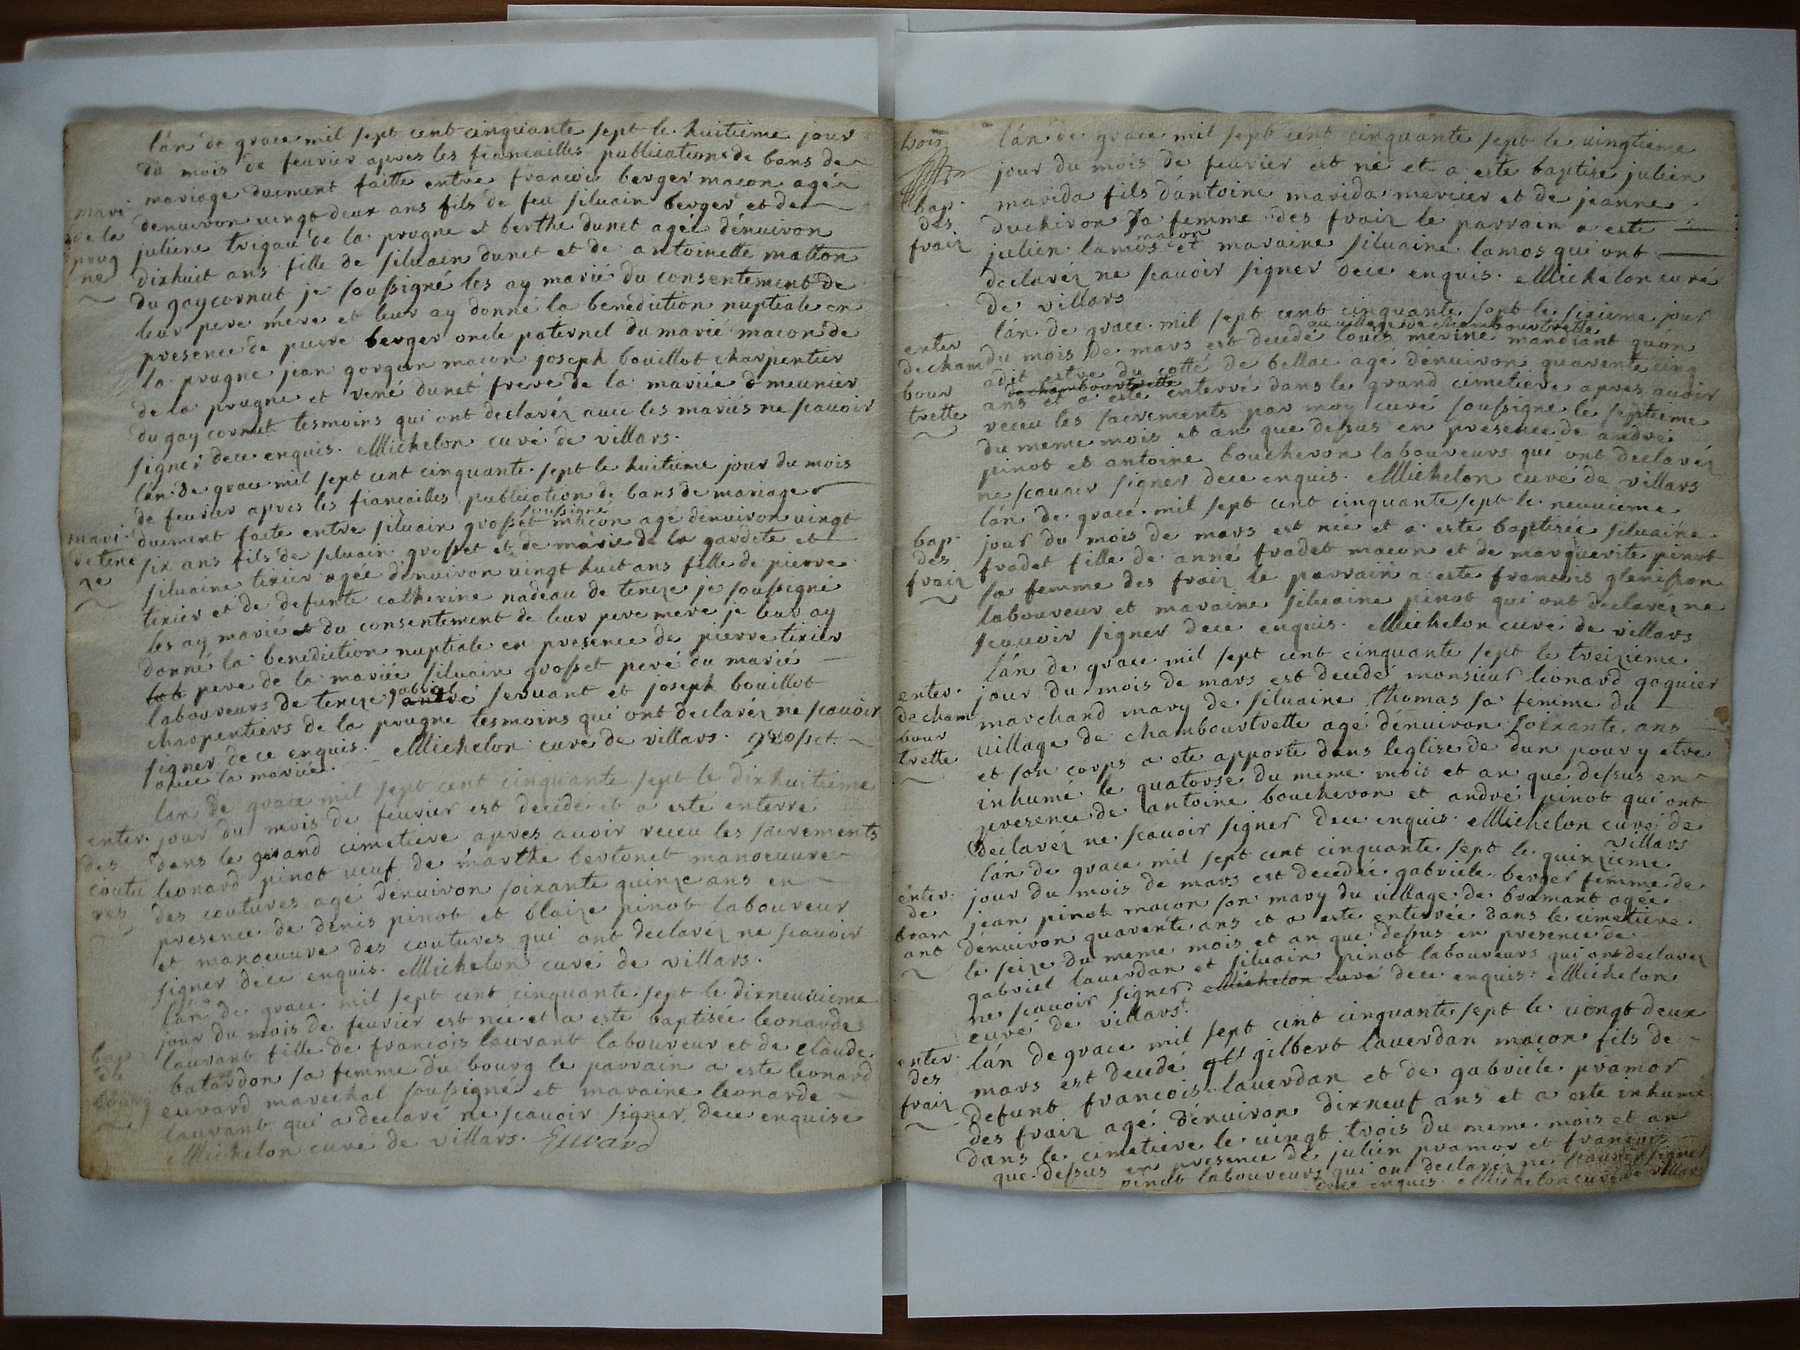 l'an de grace mil sept cent cinquante sept le huitieme jour
du mois de feuvrier apres les fiancailles publications de bans de
mariage duement faitte entre francois berger macon agéz
mari
denuiron vingt deux ans fils de feu siluain berger et de
de la
juliene trigau de la prugne et berthe dunet agée dénuiron
prug
dixhuit ans fille de siluain dunet et de antoinette matton
ne
du gaycornut je soussigné les ay marié du consentement de
leur pere mere et leur ay donné la benediction nuptiale en
presence de pierre berger oncle paternel du marié macon de
la prugne jean gorgon macon joseph bouillot charpentier
de la prugne et rené dunet frere de la mariée meunier
du gay cornut tesmoins qui ont declaréz auec les mariés ne scauoir
signer dece enquis. Michelon curé de villars.
l'an de grace mil sept cent cinquante sept le huitieme jour du mois
de feuvrier apres les fiancailles publication de bans de mariage
soussigné
duement faite entre siluain grosset macon agé dénuiron vingt
mari
six ans fils de siluain grosset et de marie de la gardete et
de tene
siluaine tixier agée dénuiron vingt huit ans fille de pierre
ze
tixier et de defunte catherine nadeau de tenize je soussigné
les ay marié et du consentement de leur pere mere je leur ay
donné la benediction nuptiale en presence de pierre tixier
pere de la mariée siluain grosset peré du marié
gabriel
laboureurs de tenize andré seruant et joseph bouillot
charpentiers de la prugne tesmoins qui ont declaréz ne scauoir
signer de ce enquis. Michelon curé de villars. grosset.
auec la mariée.
l'an de grace mil sept cent cinquante sept le dixhuitieme
jour du mois de feuvrier est decedé et a esté enterré
enter.
dans le grand cimetiere apres auoir receu les sacrements
des
leonard pinot veuf de marthe bertonet manoeuure
coutu
des coutures agé dénuiron soixante quinze ans en
res
presence de denis pinot et blaize pinot laboureur
et manoeuure des coutures qui ont declaréz ne scauoir
signer dece enquis. Michelon curé de villars.
l'an de grace mil sept cent cinquante sept le dixneuuieme
jour du mois de feuvrier est née et a esté baptisée leonarde
bap
laurant fille de francois laurant laboureur et de claude
du
batardon sa femme du bourg le parrain a esté leonard
bourg
euuard marechal soussigné et maraine leonarde
laurant qui a declaré ne scauoir signer dece enquise
Michelon curé de villars. Euuard
trois
l'an de grace mil sept cent cinquante sept le vingtieme
jour du mois de feuvrier est né et a esté baptisé julien
bap.
marida fils d'antoine marida mercier et de jeanne
des
duchiron sa femme des fraiz le parrain a esté
macon
fraiz
julien lamos et maraine siluaine lamos qui ont
declaréz ne scauoir signer dece enquis. Michelon curé
de villars
l'an de grace mil sept cent cinquante sept le sixieme jour
au village de chambourtrette
enter
du mois de mars est decedé louis merine mandiant qu'on
de cham
a dit estre du cotté de bellac agé dénuiron quarente cinq
de chambourtrette
bour
ans et a esté enterré dans le grand cimetiere apres auoir
trette
receu les sacrements par moy curé soussigné le septieme
du meme mois et an que dessus en presence de andré
pinot et antoine boucheron laboureurs qui ont declaréz
ne scauoir signer dece enquis. Michelon curé de villars
l'an de grace mil sept cent cinquante sept le neuuieme
bap.
jour du mois de mars est née et a esté baptisée siluaine
des
fradet fille de anné fradet macon et de marguerite pinot
fraiz
sa femme des fraiz le parrain a esté francois glenisson
laboureur et maraine siluaine pinot qui ont declaréz ne
scauoir signer dece enquis. Michelon curé de villars
l'an de grace mil sept cent cinquante sept le treizieme
enter.
jour du mois de mars est decedé monsieur lionard gaquier
de cham
marchand mary de siluaine thomas sa femme du
bour
village de chambourtrette agé dénuiron soixante ans
trette
et son corps a ete apporté dans leglise de dun pour y etre
inhumé le quatorse du meme mois et an que dessus en
presence de antoine boucheron et andré pinot qui ont
declaréz ne scauoir signer dece enquis. Michelon curé de
villars
l'an de grace mil sept cent cinquante sept le quinzieme
enter.
jour du mois de mars est decedée gabriele berger femme de
de
jean pinot macon son mary du village de bramant agée
bram
dénuiron quarente ans et a esté enterrée dans le cimetiere
ant
le seize du meme mois et an que dessus en presence de
gabriel lauerdan et siluain pinot laboureurs qui ont declaréz
ne scauoir signer Michelon curé dece enquis. Michelon
curé de villars.
l'an de grace mil sept cent cinquante sept le vingt deux
enter
mars est decedé gilbert lauerdan macon fils de
des
defunt francois lauerdan et de gabriele pramor
fraiz
des fraiz agé dénuiron dixneuf ans et a esté inhumé
dans le cimetiere le vingt trois du meme mois et an
que dessus en presence de julien pramor et francois
pinot laboureurs qui ont declaréz ne scauoir signer
dece enquis. Michelon curé de villars